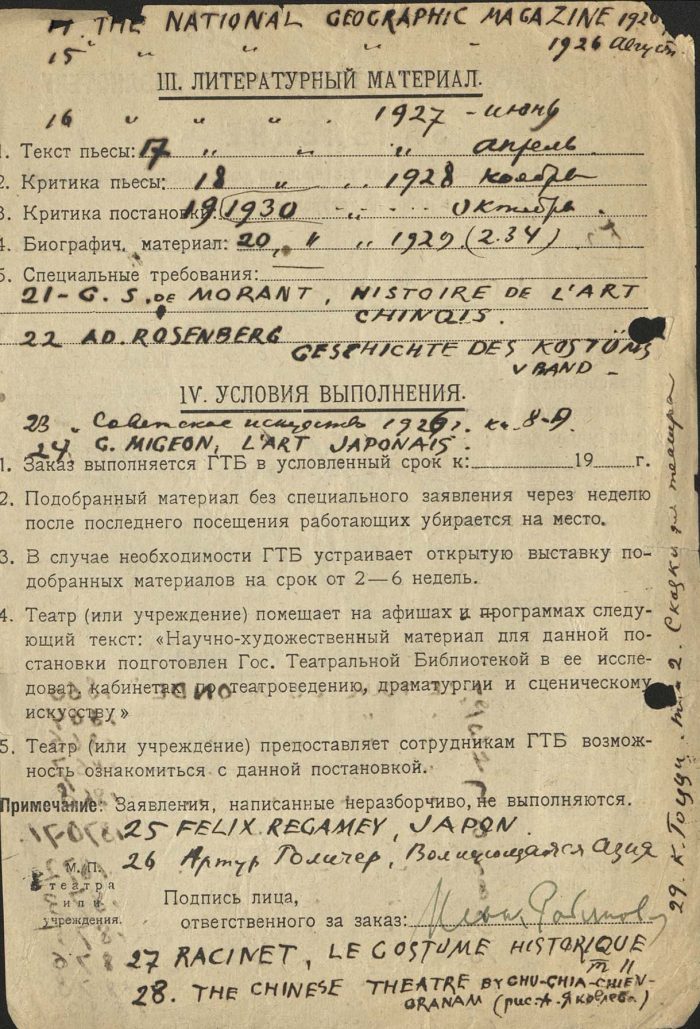 THE NATIONAL GEOGRAPHIC MAGAZINE 1926
15 " " " - 1926 Август
III. ЛИТЕРАТУРНЫЙ МАТЕРИАЛ.
16 " " " . 1927 - июнь
1. Текст пьесы: 17 " " " апрель
2. Критика пьесы: 18 " . . 1928 ноябрь
3. Критика постановки: 19 (1930 " Октябрь .
4. Биографич. материал: 20, " " 1929 (2.34)
5. Специальные требования:
21 - G. S. DE MORANT, HISTOIRE DE L'ART
CHINOIS.
22 AD. ROSENBERG
GESCHICHTE DES KOSTÜMS
V BAND -
IV. УСЛОВИЯ ВЫПОЛНЕНИЯ.
23 . Советское искусство 1926 г. кн. 8-9.
24 G. MIGEON, L'ART JAPONAIS.
1. Заказ выполняется ГТБ в условленный срок к: 19 г.
2. Подобранный материал без специального заявления через неделю
после последнего посещения работающих убирается на место.
3. В случае необходимости ГТБ устраивает открытую выставку по-
добранных материалов на срок от 2—6 недель.
4. Театр (или учреждение) помещает на афишах и программах следу-
ющий текст: «Научно-художественный материал для данной по-
становки подготовлен Гос. Театральной Библиотекой в ее иссле-
доват. кабинетах по театроведению, драматургии и сценическому
искусству»
5. Театр (или учреждение) предоставляет сотрудникам ГТБ возмож-
ность ознакомиться с данной постановкой.
Примечание: Заявления, написанные неразборчиво, не выполняются.
25 FELIX REGAMEY, JAPON.
26 Артур Голичер, Волнующаяся Азия
М. П.
театра
или
учреждения.
Подпись лица,
ответственного за заказ:
27 RACINET, LE COSTUME HISTORIQUE
m II
28. THE CHINESE THEATRE BY CHU-CHIA-CHIEN-
GRANAM (рис. А. Яковлева)
29. К. Гоцци. том 2. Сказки для театра